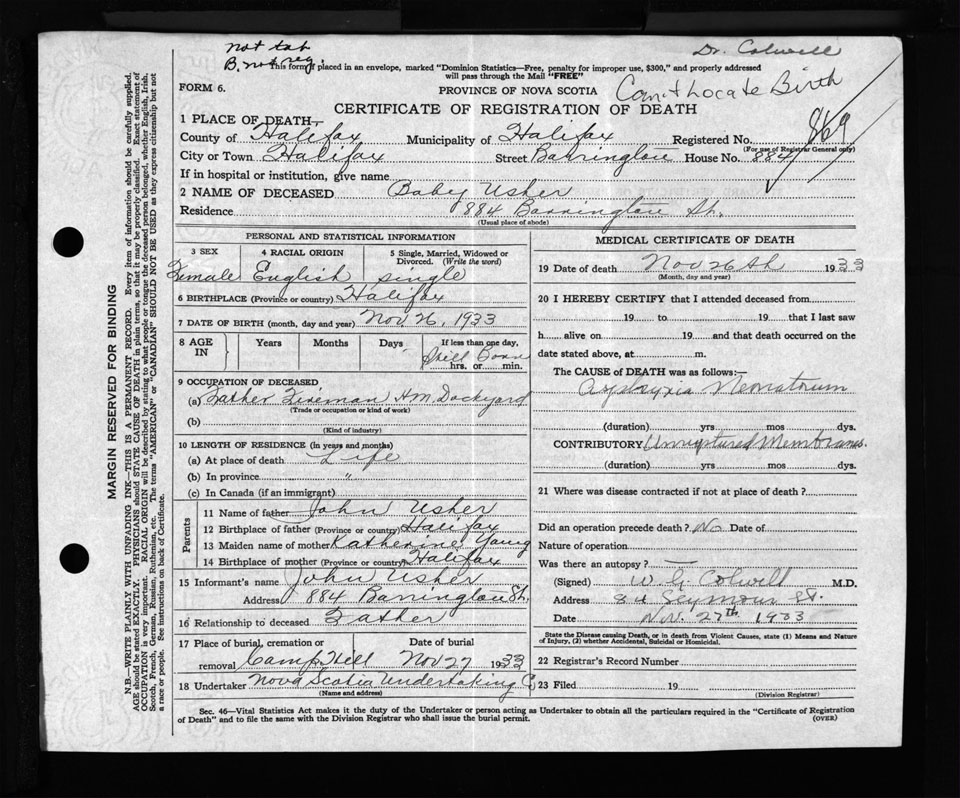 not tab
B. not reg.
Dr. Colwell
This form if placed in an envelope, marked "Dominion Statistics—Free, penalty for improper use, $300," and properly addressed
will pass through the Mail "FREE"
FORM 6.
PROVINCE OF NOVA SCOTIA
Can't Locate Birth
CERTIFICATE OF REGISTRATION OF DEATH
869
1 PLACE OF DEATH—
County of Halifax Municipality of Halifax Registered No.
(For use of Registrar General only)
City or Town Halifax Street Barrington House No. 884
If in hospital or institution, give name
2 NAME OF DECEASED Baby Usher
Residence 884 Barrington St.
(Usual place of abode)
PERSONAL AND STATISTICAL INFORMATION
3 SEX 4 RACIAL ORIGIN 5 Single, Married, Widowed or
Divorced. (Write the word)
Female English single
6 BIRTHPLACE (Province or country) Halifax
7 DATE OF BIRTH (month, day and year) Nov 26, 1933
8 AGE IN Years Months Days If less than one day,
Still Born
hrs. or min.
9 OCCUPATION OF DECEASED
(a) Father Fireman H.M. Dockyard
(Trade or occupation or kind of work)
(b)
(Kind of industry)
10 LENGTH OF RESIDENCE (in years and months)
(a) At place of death Life
(b) In province "
(c) In Canada (if an immigrant)
Parents
11 Name of father John Usher
12 Birthplace of father (Province or country) Halifax
13 Maiden name of mother Katherine Young
14 Birthplace of mother (Province or country) Halifax
15 Informant's name John Usher
Address 884 Barrington St.
16 Relationship to deceased Father
17 Place of burial, cremation or Date of burial
removal Camp Hill Nov 27 1933
18 Undertaker Nova Scotia Undertaking C
(Name and address)
MEDICAL CERTIFICATE OF DEATH
19 Date of death Nov 26th 1933
(Month, day and year)
20 I HEREBY CERTIFY that I attended deceased from
19 to 19 that I last saw
h alive on 19 and that death occurred on the
date stated above, at m.
The CAUSE of DEATH was as follows:—
Asphyxia Neonatorum
(duration) yrs mos dys.
CONTRIBUTORY Unruptured Membranes.
(duration) yrs mos dys.
21 Where was disease contracted if not at place of death?
Did an operation precede death? No Date of
Nature of operation
Was there an autopsy? —
(Signed) W. G. Colwell M.D.
Address 84 Seymour St.
Date Nov. 27th 1933
State the Disease causing Death, or in death from Violent Causes, state (1) Means and Nature
of Injury, (2) whether Accidental, Suicidal or Homicidal.
22 Registrar's Record Number
23 Filed 19
(Division Registrar)
Sec. 46—Vital Statistics Act makes it the duty of the Undertaker or person acting as Undertaker to obtain all the particulars required in the "Certificate of Registration
of Death" and to file the same with the Division Registrar who shall issue the burial permit.
(OVER)
MARGIN RESERVED FOR BINDING
N.B.—WRITE PLAINLY WITH UNFADING INK—THIS IS A PERMANENT RECORD. Every item of information should be carefully supplied.
AGE should be stated EXACTLY. PHYSICIANS should STATE CAUSE OF DEATH in plain terms, so that it may be properly classified. Exact statement of
OCCUPATION is very important. RACIAL ORIGIN will be described by stating to what people or tongue the deceased person belonged, whether English, Irish,
Scotch, French, German, Russian, Ruthenian, etc. The terms "AMERICAN" or "CANADIAN" SHOULD NOT BE USED as they express citizenship but not
a race or people. See instructions on back of Certificate.